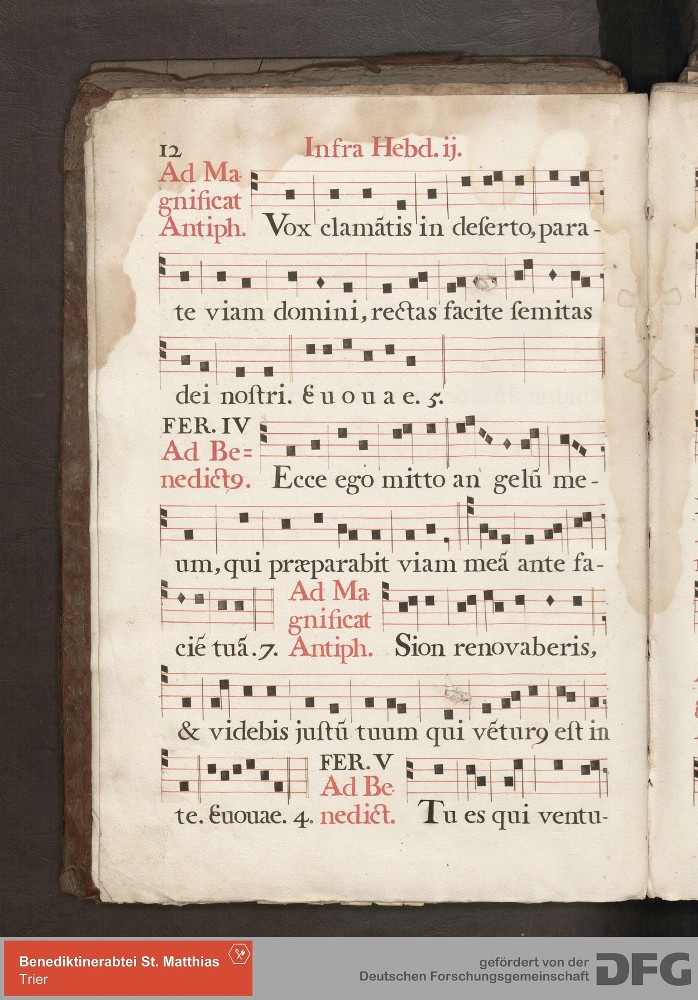 12 Infra Hebd. ij.
Ad Ma-
gnificat
Antiph. Vox clamãtis in deſerto, para-
te viam domini, rectas facite ſemitas
dei noſtri. Euouae. 5.
FER. IV
Ad Be=
nedictꝰ. Ecce ego mitto an gelũ me-
um, qui præparabit viam meã ante fa-
ciẽ tuã. 7. Ad Ma-
gnificat
Antiph. Sion renovaberis,
& videbis juſtũ tuum qui vẽturꝰ eſt in
te. Euouae. 4. FER. V
Ad Be-
nedict. Tu es qui ventu-
Benediktinerabtei St. Matthias
Trier
gefördert von der
Deutschen Forschungsgemeinschaft DFG